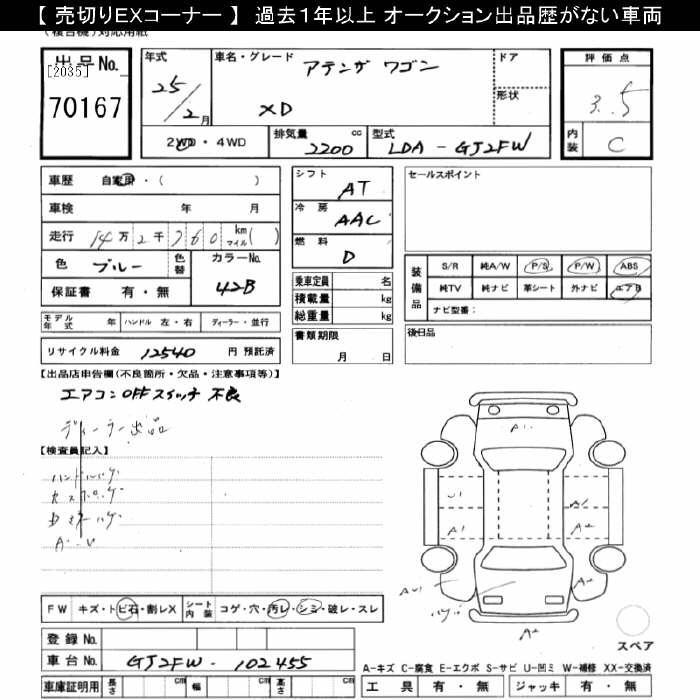 【 売切りEXコーナー 】 過去1年以上 オークション出品歴がない車両
(複合機)対応用紙
出品No.
[2035]
70167
年式
25/2月
車名・グレード
アテンザ ワゴン
XD
ドア
形状
評価点
3.5
内装
C
2WD・4WD
排気量
2200 cc
型式
LDA-GJ2FW
車歴 自家用・( )
車検 年 月
走行 14万2千760 km マイル( )
色 ブルー
色替
カラーNo.
42B
保証書 有・無
モデル年式 年
ハンドル 左・右
ディーラー・並行
リサイクル料金 12540 円 預託済
シフト
AT
冷房
AAC
燃料
D
乗車定員 名
積載量 kg
総重量 kg
書類期限
月 日
セールスポイント
装備品
S/R 純A/W P/S P/W ABS
純TV 純ナビ 革シート 外ナビ エアB
ナビ型番:
後日品
【出品店申告欄(不良箇所・欠品・注意事項等)】
エアコンOFFスイッチ 不良
ディーラー出品
【検査員記入】
A-U
A1
U1
A1
A1
A2
A2
A2
FW キズ・トビ石・割レX
シート内装 コゲ・穴・汚レ・シミ・破レ・スレ
登録No.
車台No. GJ2FW-102455
車庫証明用 長さ cm 幅 cm 高さ cm
スペア
A-キズ C-腐食 E-エクボ S-サビ U-凹ミ W-補修 XX-交換済
工具 有・無 ジャッキ 有・無